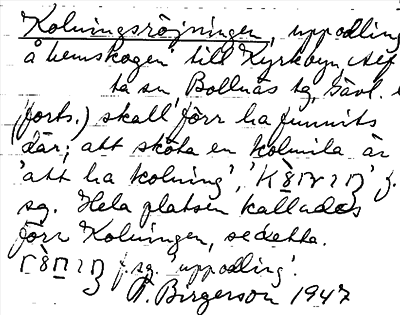 Kolningsröjningen, uppodling
å hemskogen till Kyrkbyn, Aef
ta sn, Bollnäs tg, Gävl.
(forts.) skall förr ha funnits
där; att sköta en kolmila är
'att ha kolning', f.
sg. Hela platsen kallades
förr Kolningen, se detta.
f.sg. 'uppodling'.
Birgerson 1947